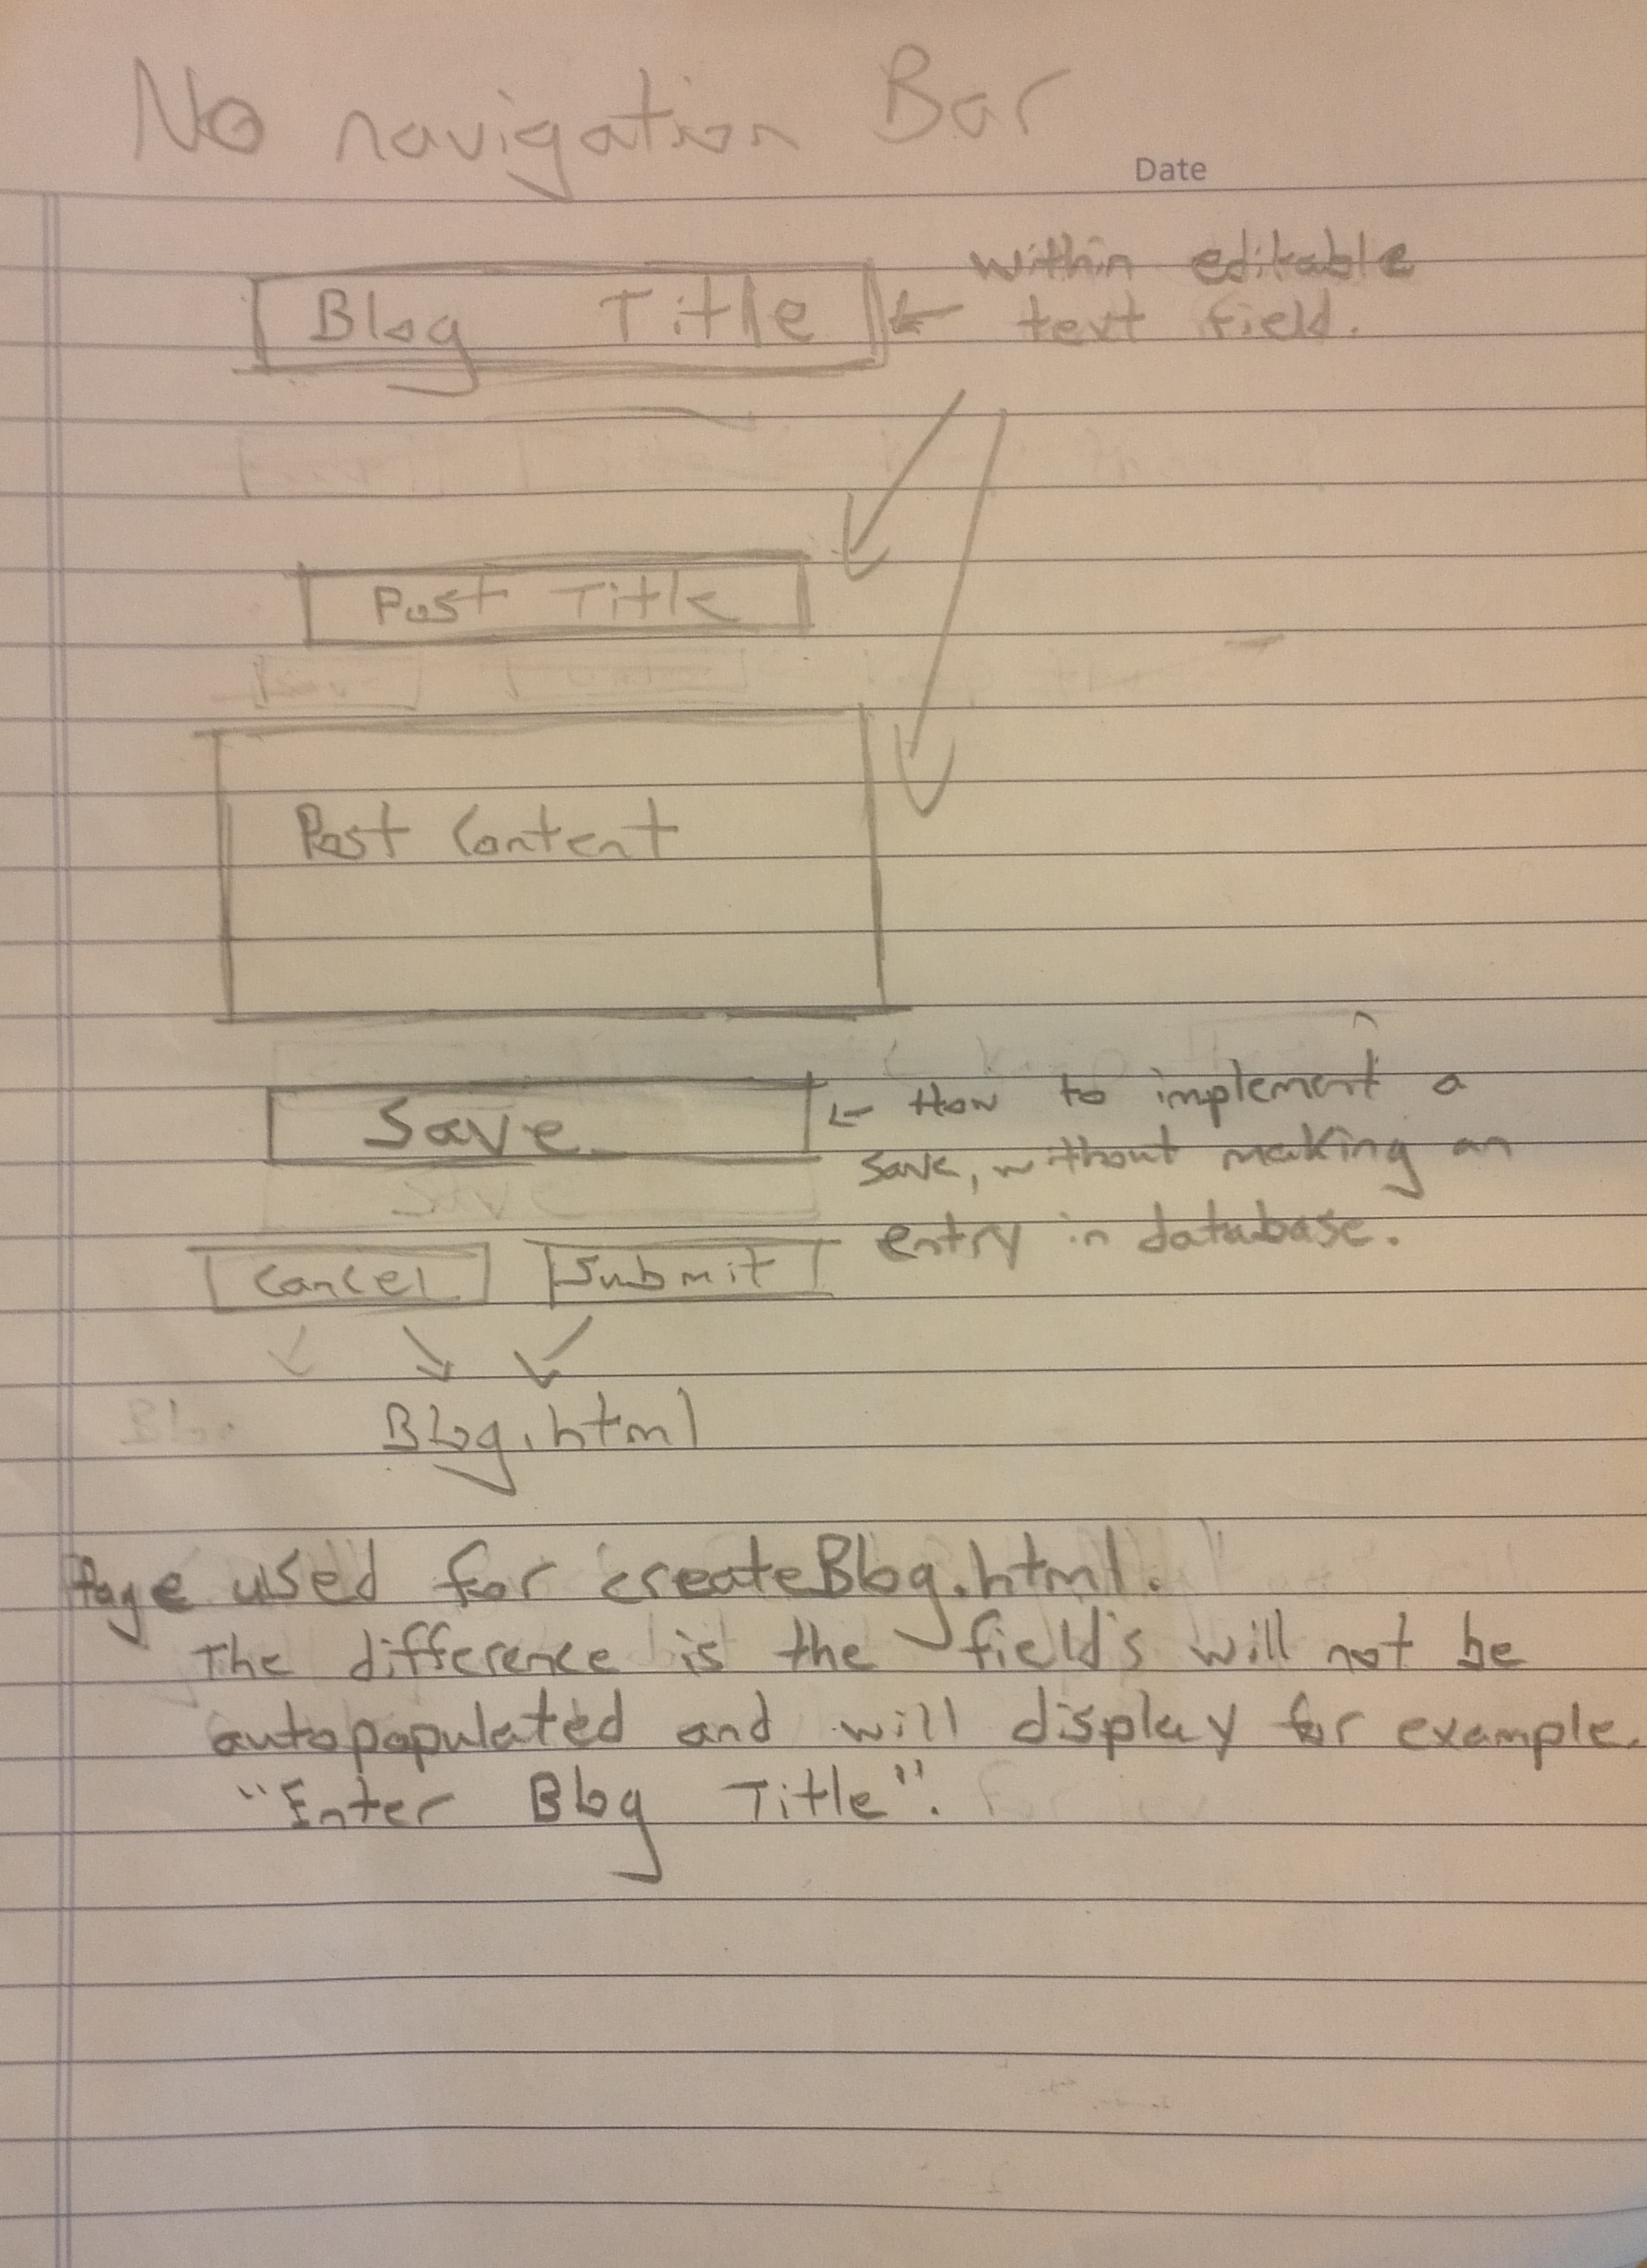 No navigation Bar
Date
Blog Title ← within editable
text field.
Post Title
Post Content
Save ← How to implement a
save, without making an
entry in database.
Cancel Submit
Blog.html
Page used for createBlog.html.
The difference is the fields will not be
autopopulated and will display for example.
"Enter Blog Title".